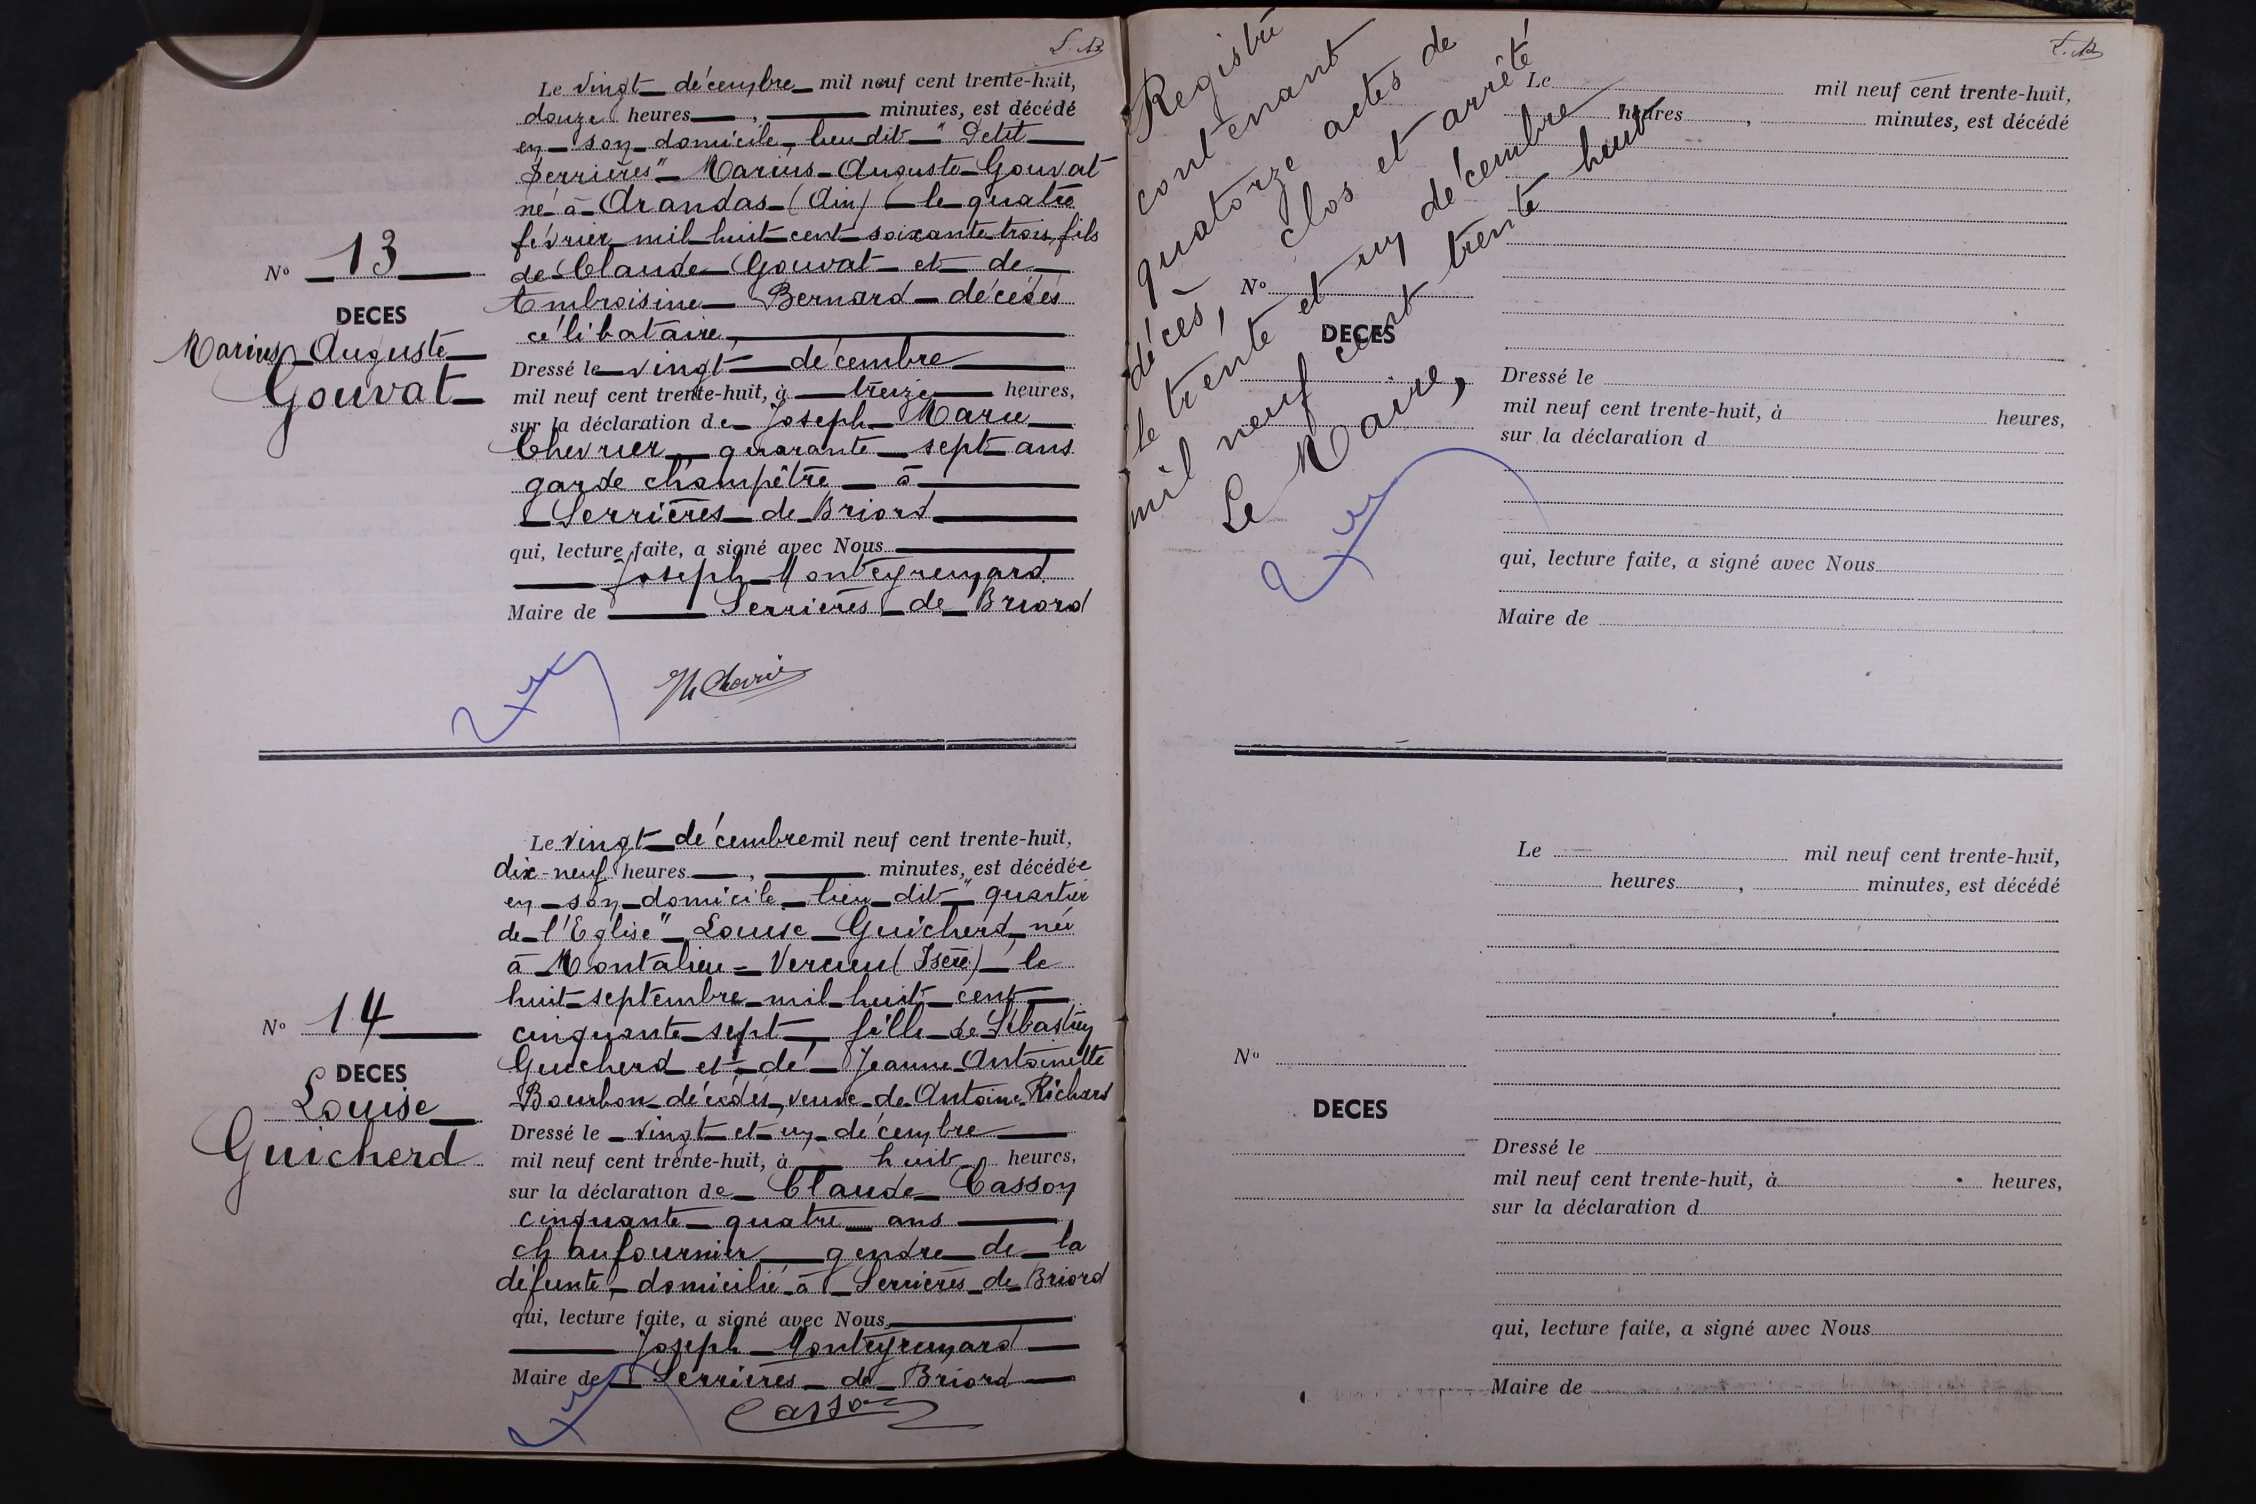 Le vingt décembre mil neuf cent trente-huit,
douze heures, minutes, est décédé
en son domicile lieu dit "Petit
Serrières" Marius Auguste Gouvat
né à Arandas (Ain) le quatre
février mil huit cent soixante trois, fils
de Claude Gouvat et de
Ambroisine Bernard décédés
célibataire,
Dressé le vingt décembre
mil neuf cent trente-huit, à treize heures,
sur la déclaration de Joseph Marie
Chevrier, quarante sept ans
garde champêtre à
Serrières de Briord
qui, lecture faite, a signé avec Nous
Joseph Monteyremard
Maire de Serrières de Briord
No 13
DECES
Marius Auguste
Gouvat
Le vingt décembre mil neuf cent trente-huit,
dix-neuf heures, minutes, est décédée
en son domicile lieu dit "quartier
de l'Eglise" Louise Guicherd, née
à Montalieu-Vercieu (Isère) le
huit septembre mil huit cent
cinquante sept, fille de Sébastien
Guicherd et de Jeanne Antoinette
Bourbon décédés, veuve de Antoine Richard
Dressé le vingt et un décembre
mil neuf cent trente-huit, à huit heures,
sur la déclaration de Claude Casson
cinquante quatre ans
chaufournier gendre de la
défunte, domicilié à Serrières de Briord
qui, lecture faite, a signé avec Nous
Joseph Monteyremard
Maire de Serrières de Briord
Casson
No 14
DECES
Louise
Guicherd
Registre
contenant
quatorze actes de
décès, clos et arrêté
le trente et un décembre
mil neuf cent trente huit
Le Maire,
Le mil neuf cent trente-huit,
heures, minutes, est décédé
No
DECES
Dressé le
mil neuf cent trente-huit, à heures,
sur la déclaration d
qui, lecture faite, a signé avec Nous
Maire de
Le mil neuf cent trente-huit,
heures, minutes, est décédé
No
DECES
Dressé le
mil neuf cent trente-huit, à heures,
sur la déclaration d
qui, lecture faite, a signé avec Nous
Maire de